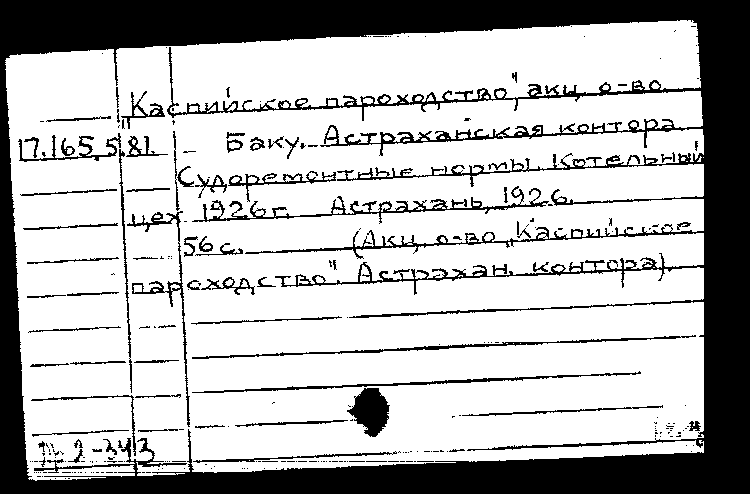 „Каспийское пароходство", акц. о-во.
17.165.5.81. - Баку. Астраханская контора.
Судоремонтные нормы. Котельный
цех 1926 г. Астрахань, 1926.
56 с. (Акц. о-во „Каспийское
пароходство". Астрахан. контора).
2-343